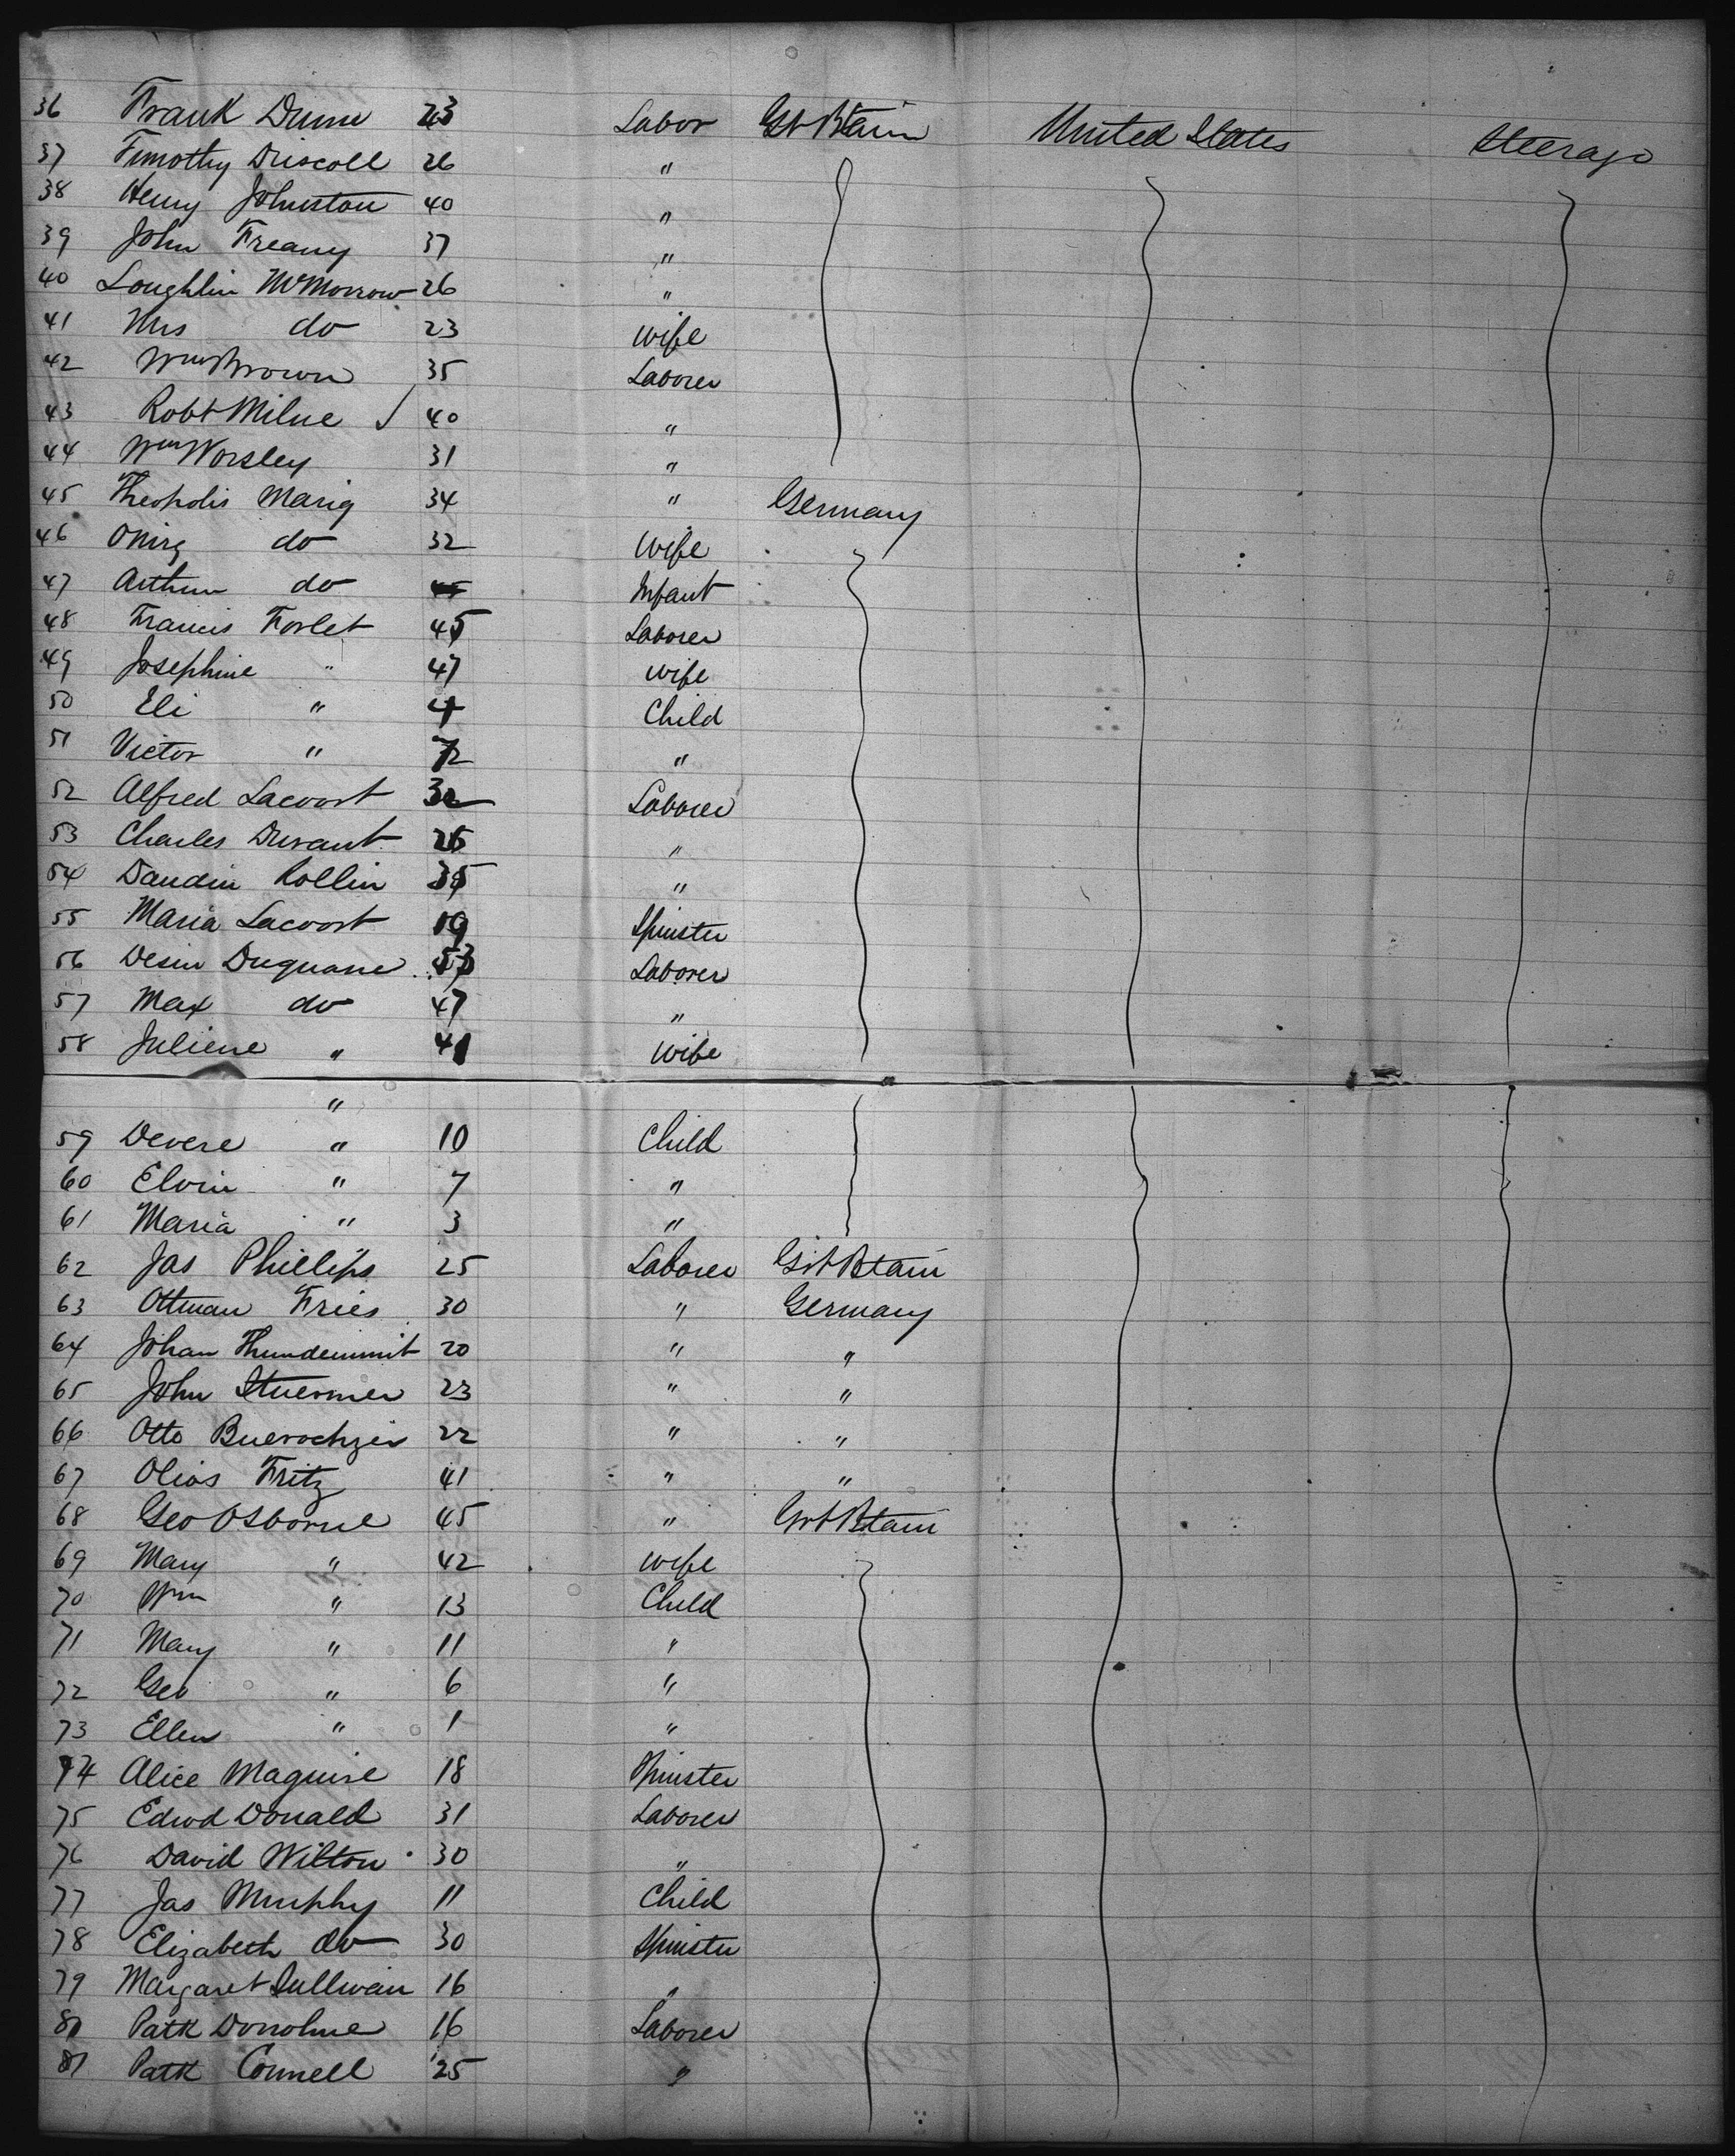 36 Frank Dunn 23 Labor Gt Btain United States Steerage
37 Timothy Driscoll 26 "
38 Henry Johnston 40 "
39 John Freany 37 "
40 Loughlin McMorrow 26 "
41 Mrs do 23 wife
42 Wm Brown 35 Laborer
43 Robt Milne ✓ 40 "
44 Wm Worsley 31 "
45 Theopolis Mariq 34 " Germany
46 do 32 Wife
47 Arthur do Infant
48 Francis Forlet 45 Laborer
49 Josephine " 47 wife
50 Eli " 4 Child
51 Victor " "
52 Alfred Lacoost 32 Laborer
53 Charles Durant "
54 Daudin Rollin 35 "
55 Maria Lacoost 19 Spinster
56 Desin Duquane 53 Laborer
57 Max do 47 "
58 Juliene " 41 Wife
"
59 Devere " 10 Child
60 Elvin " 7 "
61 Maria " 3 "
62 Jas Phillips 25 Laborer Grt Btain
63 Ottman Fries 30 " Germany
64 Johan 20 " "
65 John Stuermer 23 " "
66 Otto 22 " "
67 Olias Fritz 41 " "
68 Geo Osborne 45 " Grt Btain
69 Mary " 42 wife
70 Wm " 13 Child
71 Mary " 11 "
72 Geo " 6 "
73 Ellen " 1 "
74 Alice Maguire 18 Spinster
75 Edwd Donald 31 Laborer
76 David Wilton 30 "
77 Jas Murphy 11 Child
78 Elizabeth do 30 Spinster
79 Margaret Sullivan 16 "
80 Patk Donohue 16 Laborer
81 Patk Connell 25 "